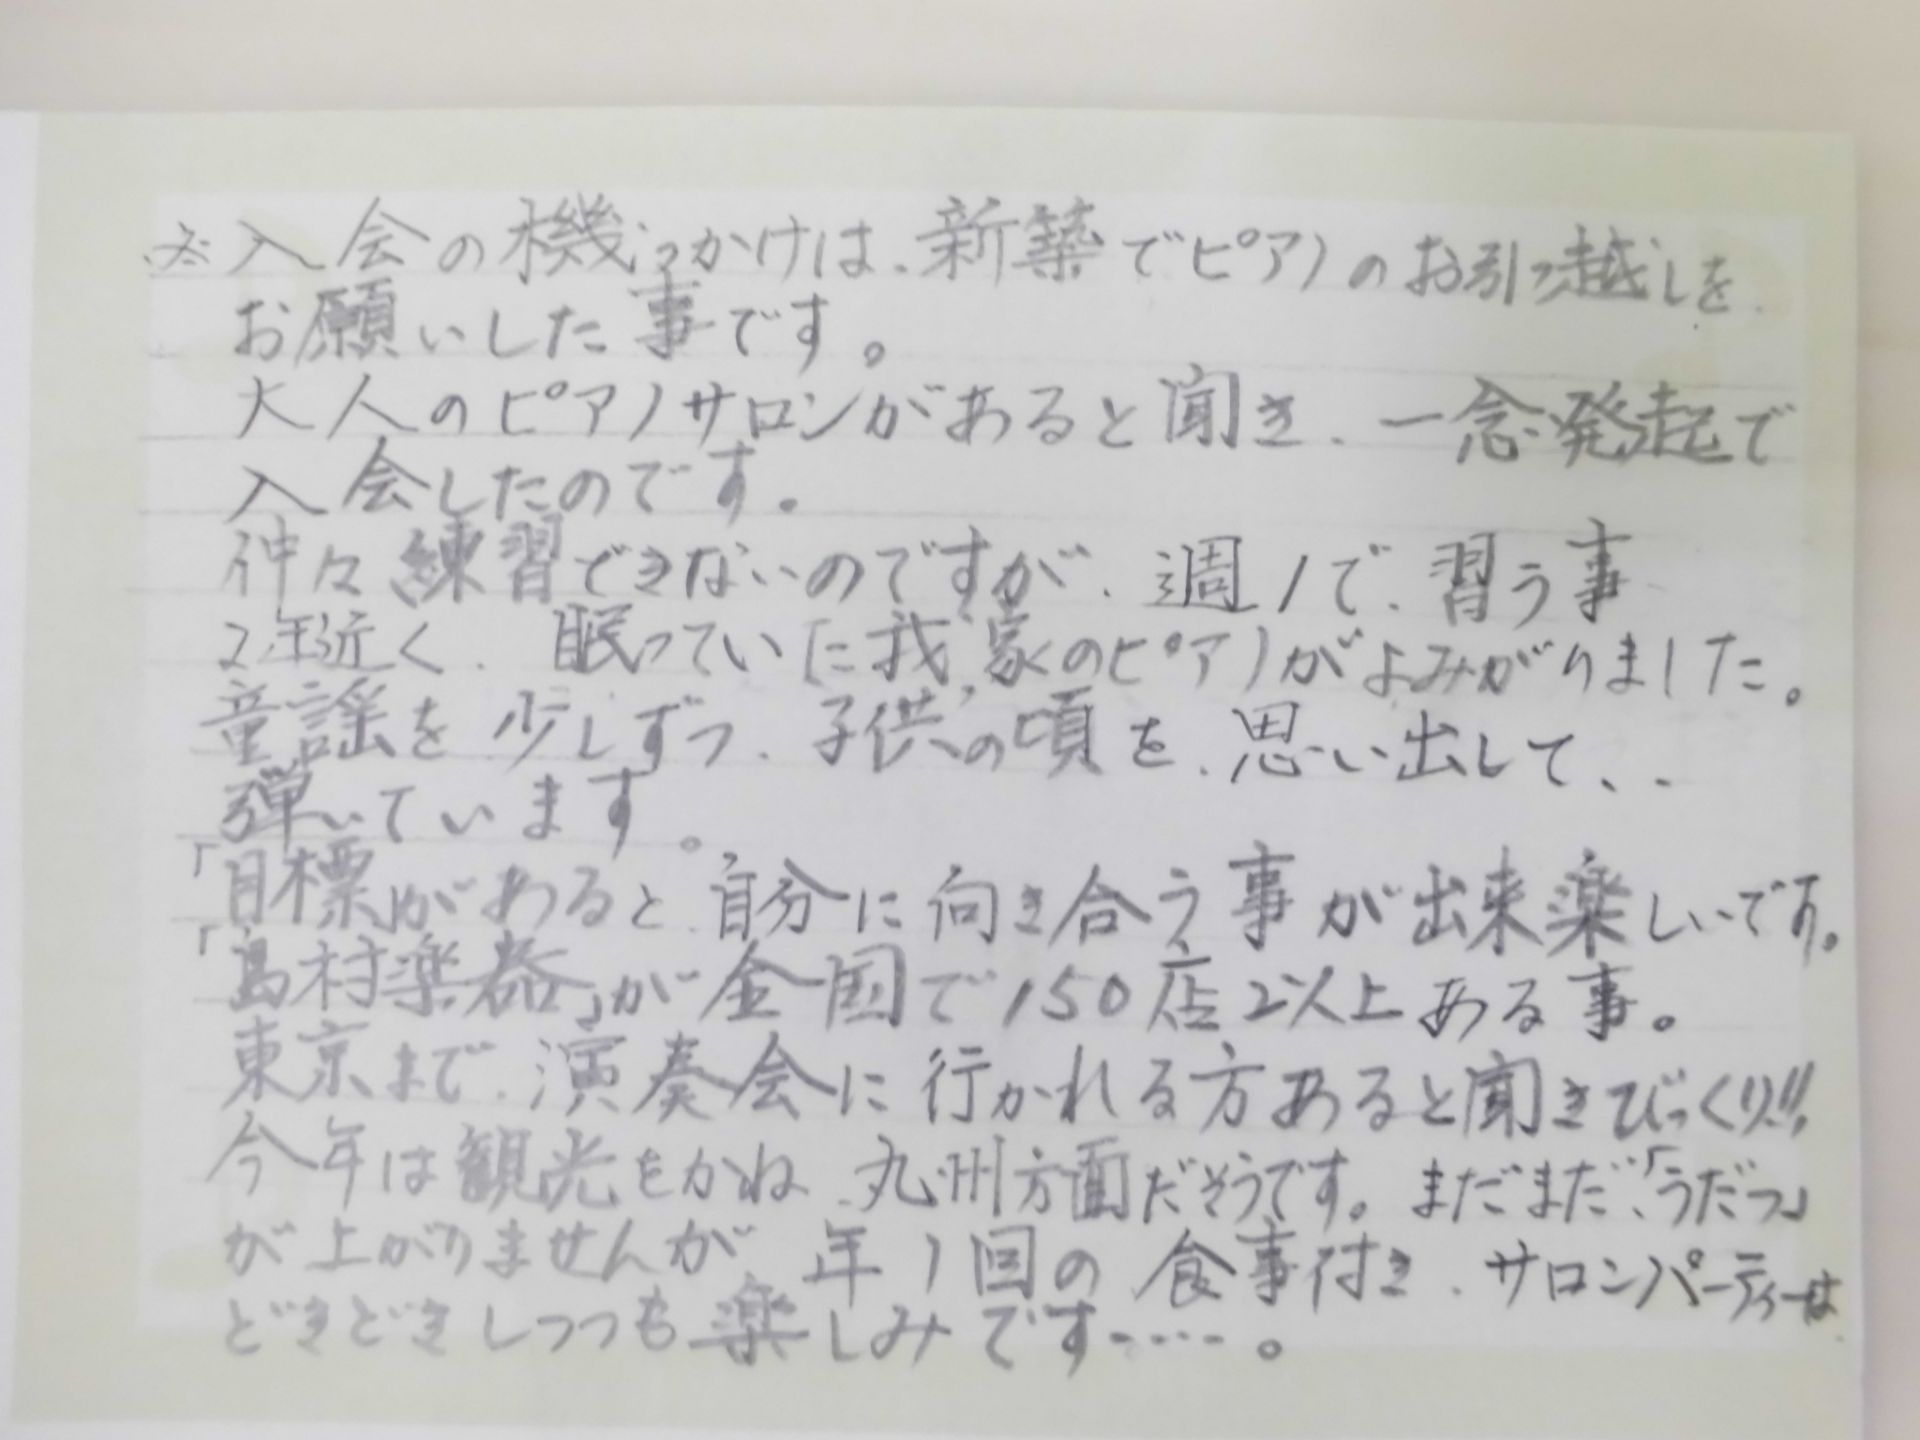 ※入会の機っかけは、新築でピアノのお引っ越しを
お願いした事です。
大人のピアノサロンがあると聞き、一念発起で
入会したのです。
仲々練習できないのですが、週1で、習う事
2年近く、眠っていた我家のピアノがよみがりました。
童謡を少しずつ、子供の頃を、思い出して、、
弾いています。
「目標」があると、自分に向き合う事が出来楽しいです。
「島村楽器」が全国で150店以上ある事。
東京まで、演奏会に行かれる方あると聞きびっくり!!
今年は観光をかね、九州方面だそうです。まだまだ、「うだつ」
が上がりませんが、年1回の食事付き、サロンパーティーは
どきどきしつつも楽しみです……。